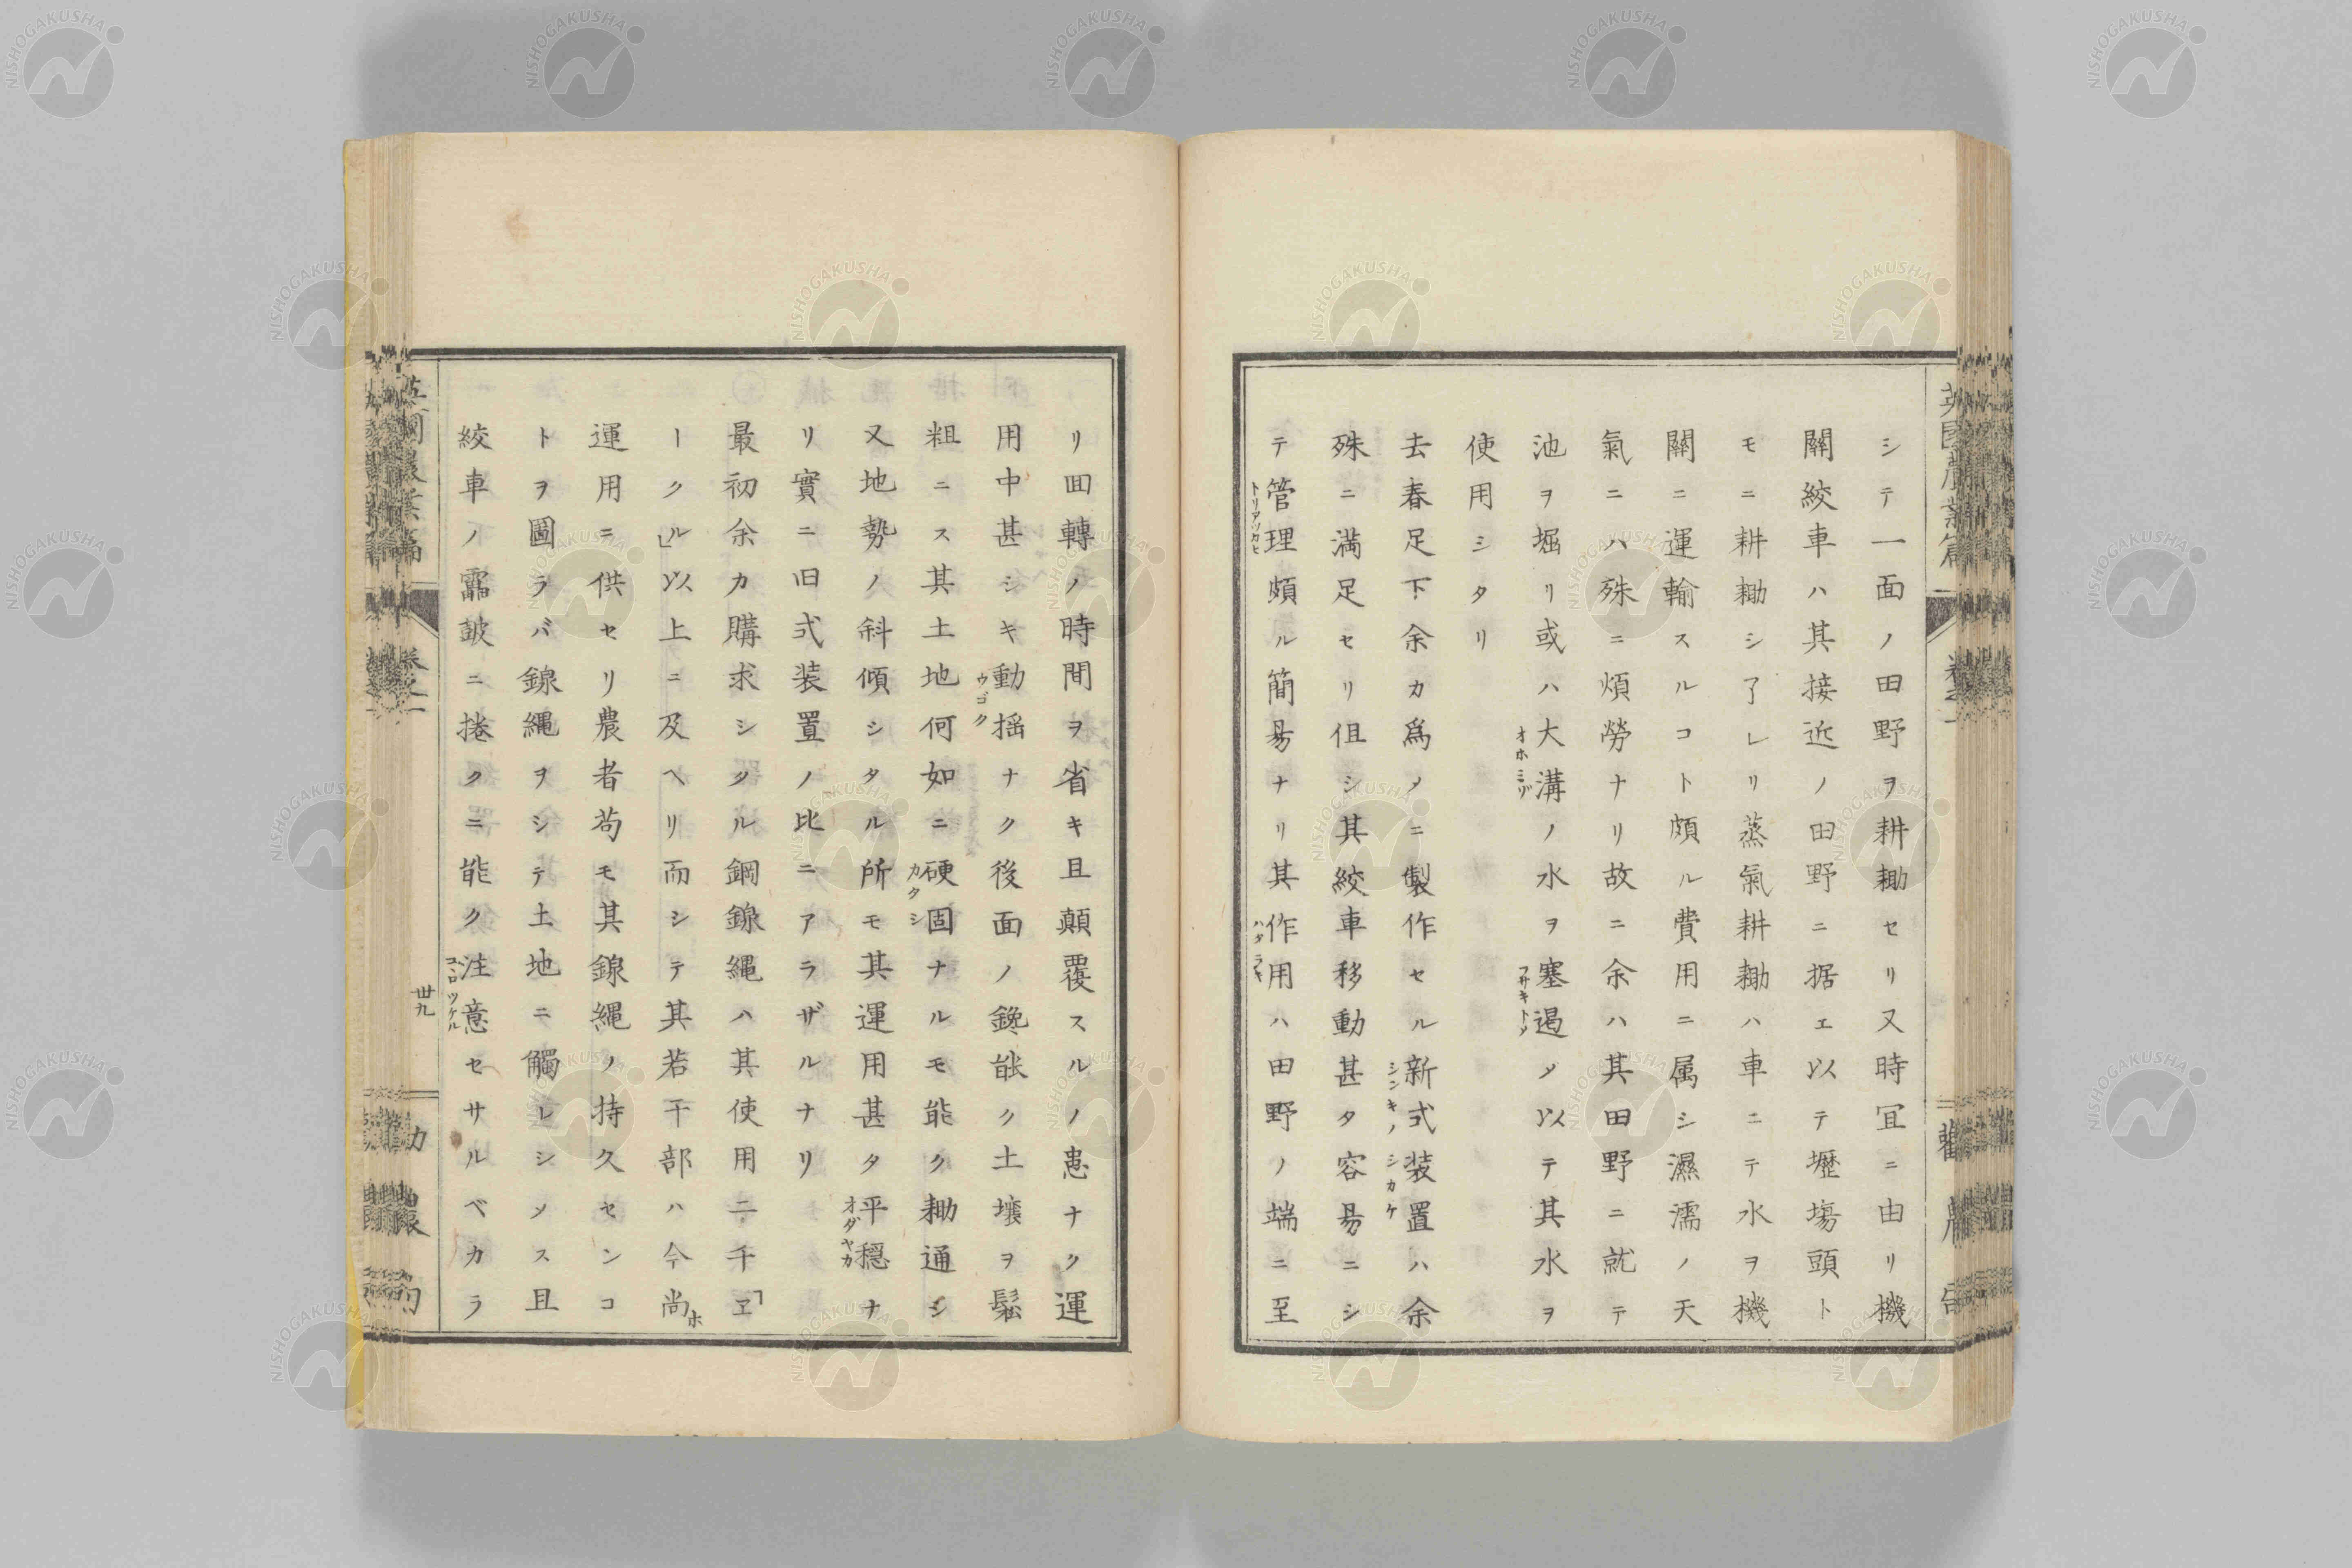 シテ一面ノ田野ヲ耕耡セリ又時宜ニ由リ機
關絞車ハ其接近ノ田野ニ据エ以テ壢塲頭ト
モニ耕耡シ了レリ蒸氣耕耡ハ車ニテ水ヲ機
關ニ運輸スルコト頗ル費用ニ属シ濕濡ノ天
氣ニハ殊ニ煩勞ナリ故ニ余ハ其田野ニ就テ
池ヲ堀リ或ハ大溝ノ水ヲ塞遏メ以テ其水ヲ
オホミゾ
フサキトメ
使用シタリ
去春足下余カ爲メニ製作セル新式装置ハ余
シンキノシカケ
殊ニ満足セリ但シ其絞車移動甚タ容昜ニシ
テ管理頗ル簡昜ナリ其作用ハ田野ノ端ニ至
トリアツカヒ
ハタラキ
リ回轉ノ時間ヲ省キ且顛覆スルノ患ナク運
用中甚シキ動揺ナク後面ノ鑱能ク土壌ヲ鬆
ウゴク
粗ニス其土地何如ニ硬固ナルモ能ク耡通シ
カタシ
又地勢ノ斜傾シタル所モ其運用甚タ平穏ナ
オダヤカ
リ實ニ旧式装置ノ比ニアラザルナリ
最初余カ購求シタル鋼鎳縄ハ其使用二千「ヱ
ークル」以上ニ及ヘリ而シテ其若干部ハ今尚
ホ
運用ニ供セリ農者苟モ其鎳縄ノ持久センコ
トヲ圖ラバ鎳縄ヲシテ土地ニ觸レシメス且
絞車ノ轤皷ニ捲クニ能ク注意セサルベカラ
コヽロツケル
英國農業篇
卷之一
卅九
勸農局
NISHOGAKUSHA